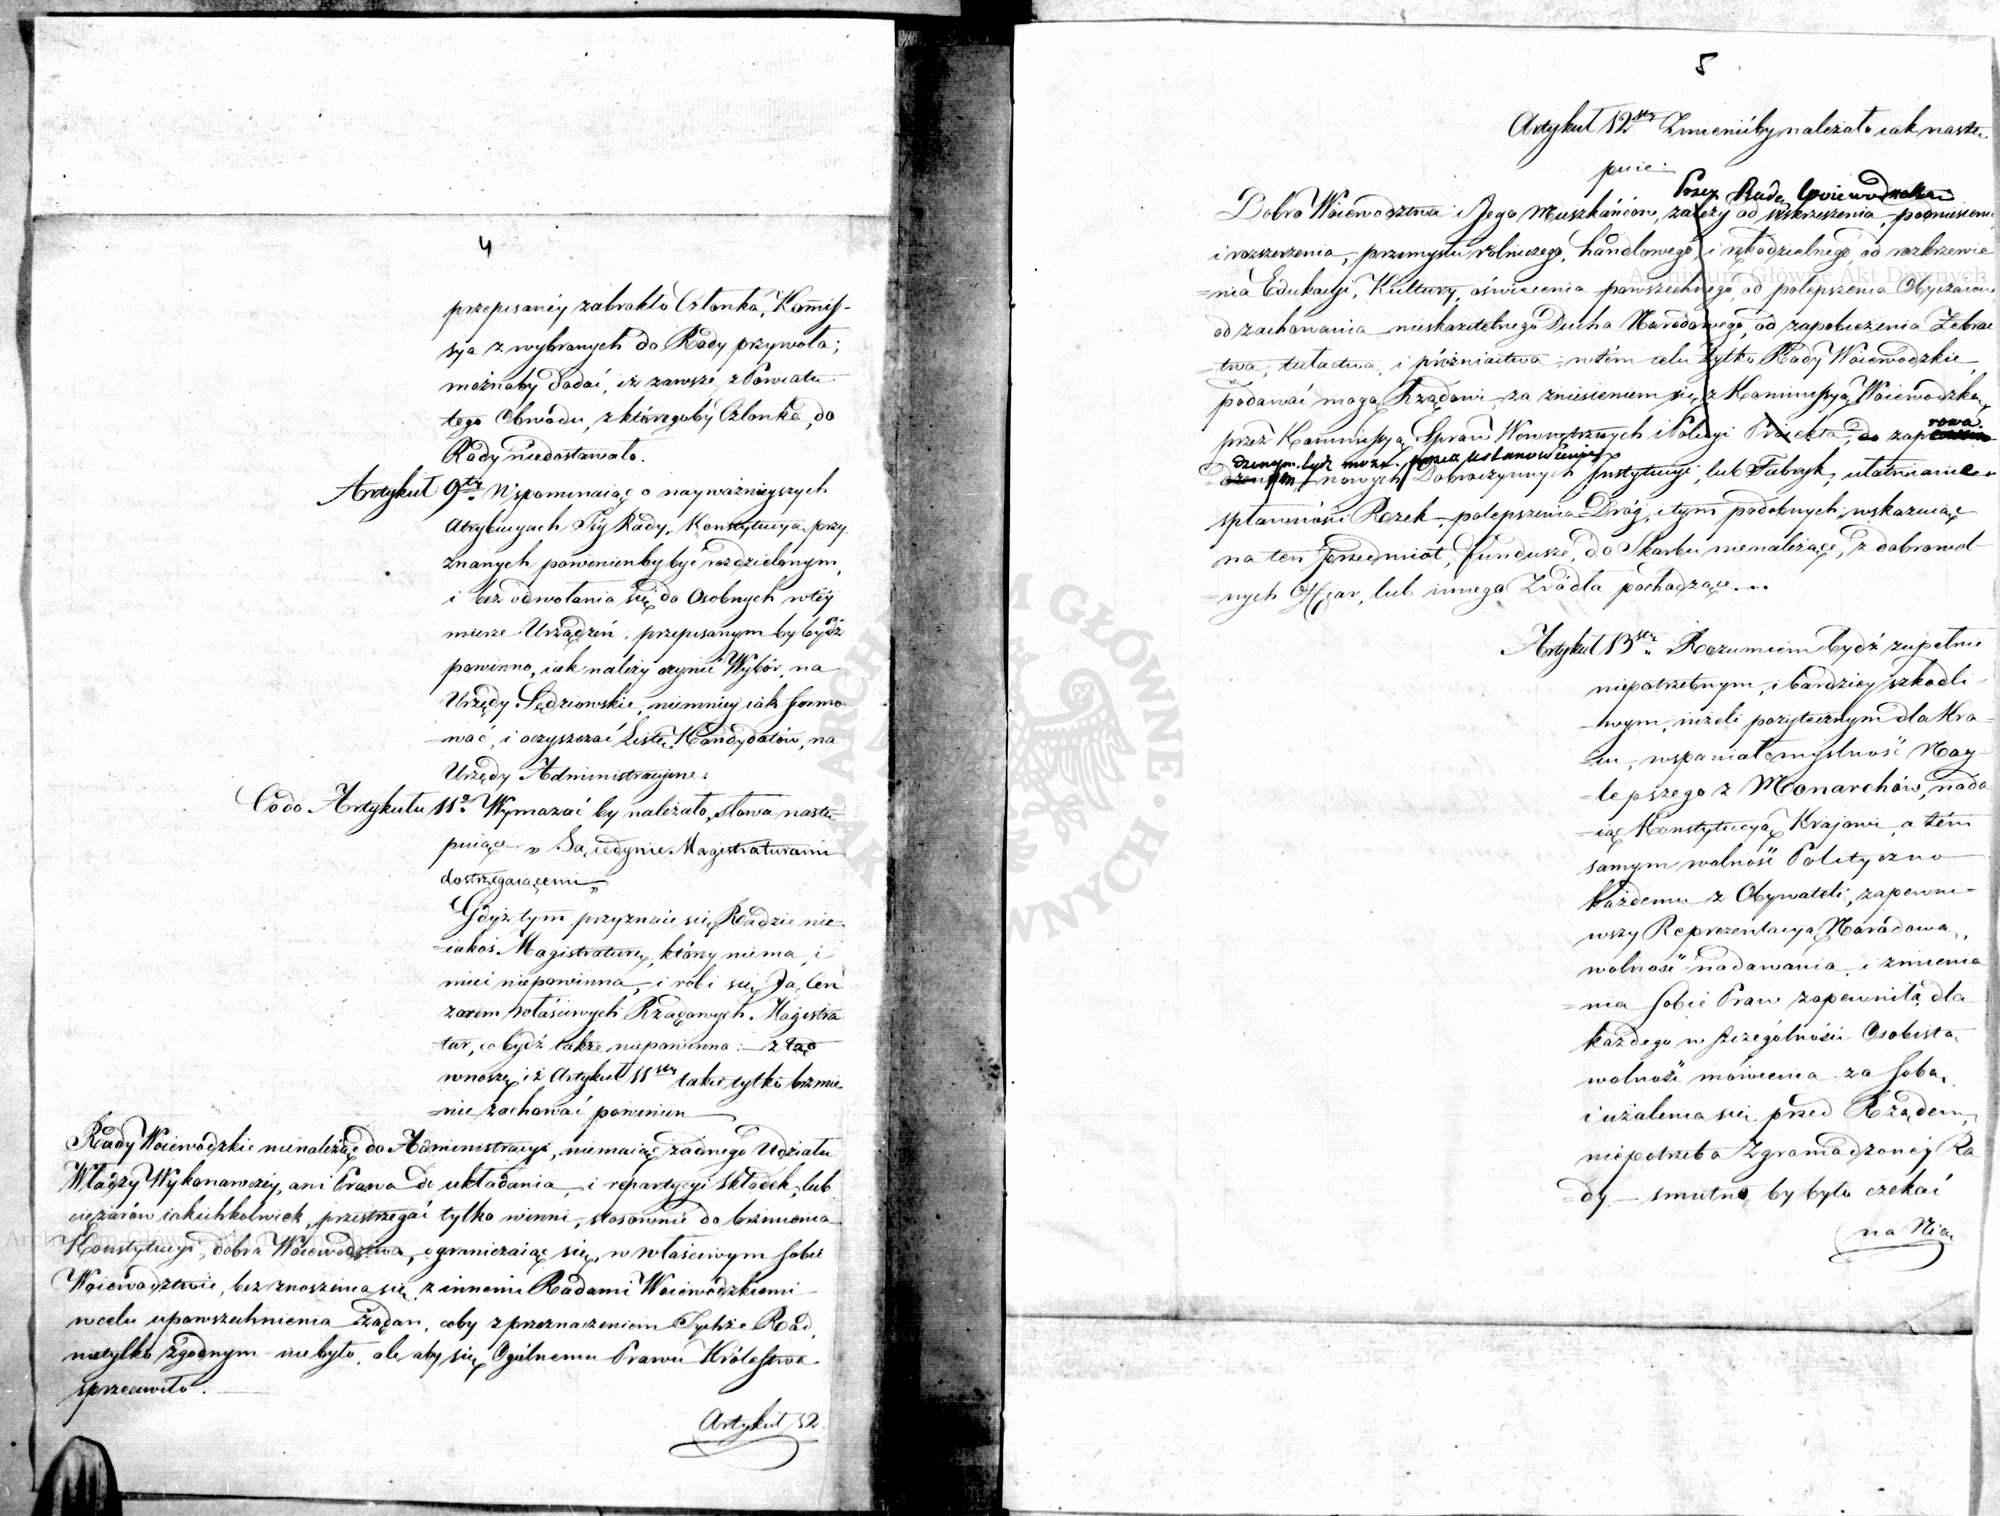 4
przepisanéy zabrakło Członka, Kommis-
sya z wybranych do Rady przywoła;
możnaby dodać, iż zawsze z Powiatu
tego Obwodu, z któregoby Członka, do
Rady niedostawało.
Artykuł 9ty. Wspominaiąc o nayważnieyszych
Atrybucyach Téy Rady, Konstytucyą przy
znanych powinienby być rozdzielonym,
i bez odwołania się do Osobnych w téy
mierze Urządzeń, przepisanym by bydź
powinno, iak należy czynić Wybór, na
Urzędy Sędziowskie, niemniéy iak formo
-wać, i oczyszczać Listę Kandydatów, na
Urzędy Administracyine.
Co do Artykułu 11o. Wymazać by należało, słowa nastę
puiące „ Są iedynie Magistraturami
dostrzegaiącemi„
Gdyż tym przyznaie się Radzie nie-
=iakoś Magistraturę, któréy niema, i
mieć niepowinna, i robi się Ją Cen
zorem właściwych Rządowych Magistra
tur, co bydź także niepowinna: — z tąd
wnoszę iż Artykuł 11sty takie tylko brzmie
=nie zachować powinien
Rady Woiewódzkie nienależąc do Administracyi, niemaiąc żadnego Udziału
Władzy Wykonawczéy, ani Prawa do układania, i repartycyi składek, lub
ciężarów iakichkolwiek, przestrzegać tylko winni, stosownie do brzmienia
Konstytucyi, dobra Woiewództwa, ograniczaiąc się, w właściwym sobie
Woiewództwie, bez znoszenia się, z innemi Radami Woiewódzkiemi
w celu upowszechnienia żądań, coby z przeznaczeniem Tychże Rad,
nietylko zgodnym niebyło, ale aby się Ogólnemu Prawu Królestwa
sprzeciwiło.
Artykuł 12.
5
Artykuł 12sty Zmienićby należało iak nastę-
puie:
Przez Radę Woiewódzką
Dobro Woiewództwa i Jego Mieszkańców, zależy od wskrzeszenia, podniesienia
i rozszerzenia, przemysłu rolniczego, handlowego, i rękodzielnego, od rozkrzewie
=nia Edukacyi, Kultury, oświecenia powszechnego, od polepszenia Obyczaiów
od zachowania nieskazitelnego Ducha Narodowego, od zapobieżenia Żebrac
=twa, tułactwa, i próżniactwa; w tém celu tylko Rady Woiewódzkie
podawać mogą Rządowi, za zniesieniem się z Kommissyą Woiewódzką,
przez Kommissyą Spraw Wewnętrznych i Policyi Proiekta, do zapro
wa
dzonym bydź może przez ustanowienie
nowych Dobroczynnych Instytucyi, lub Fabryk, ułatwienie
spławności Rzek, polepszenia Dróg, i tym podobnych, wskazuiąc
na ten przedmiot, fundusze, do Skarbu nienależące, z dobrowol-
=nych Offiar, lub innego Zródła pochodzące...
Artykuł 13sty. Rozumiem bydź zupełnie
niepotrzebnym, i bardziéy szkodli-
=wym, niżeli pożytecznym dla Kra-
=iu, wspaniałomyślność Nay-
=lepszego z Monarchów, nada
=iąc Konstytucyą Kraiowi, a tém
samym wolność Polityczną
każdemu z Obywateli, zapewni-
wszy Reprezentacyą Narodową,
wolność nadawania, i zmienia
=nia sobie Praw zapewniła, dla
każdego w szczególności Osobistą
wolność mówienia za sobą,
i użalenia się przed Rządem,
niepotrzeba Zgromadzonéy Ra
=dy — smutno by było czekać
na Nią